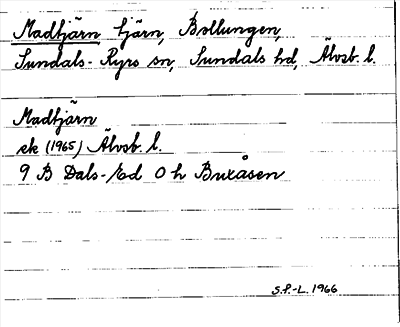 Madtjärn tjärn, Bollungen,
Sundals-Ryrs sn, Sundals hd, Älvsb. l.
Madtjärn
ek (1965) Älvsb. l.
9 B Dals-Ed 0 h Buxåsen
S.P.-L. 1966